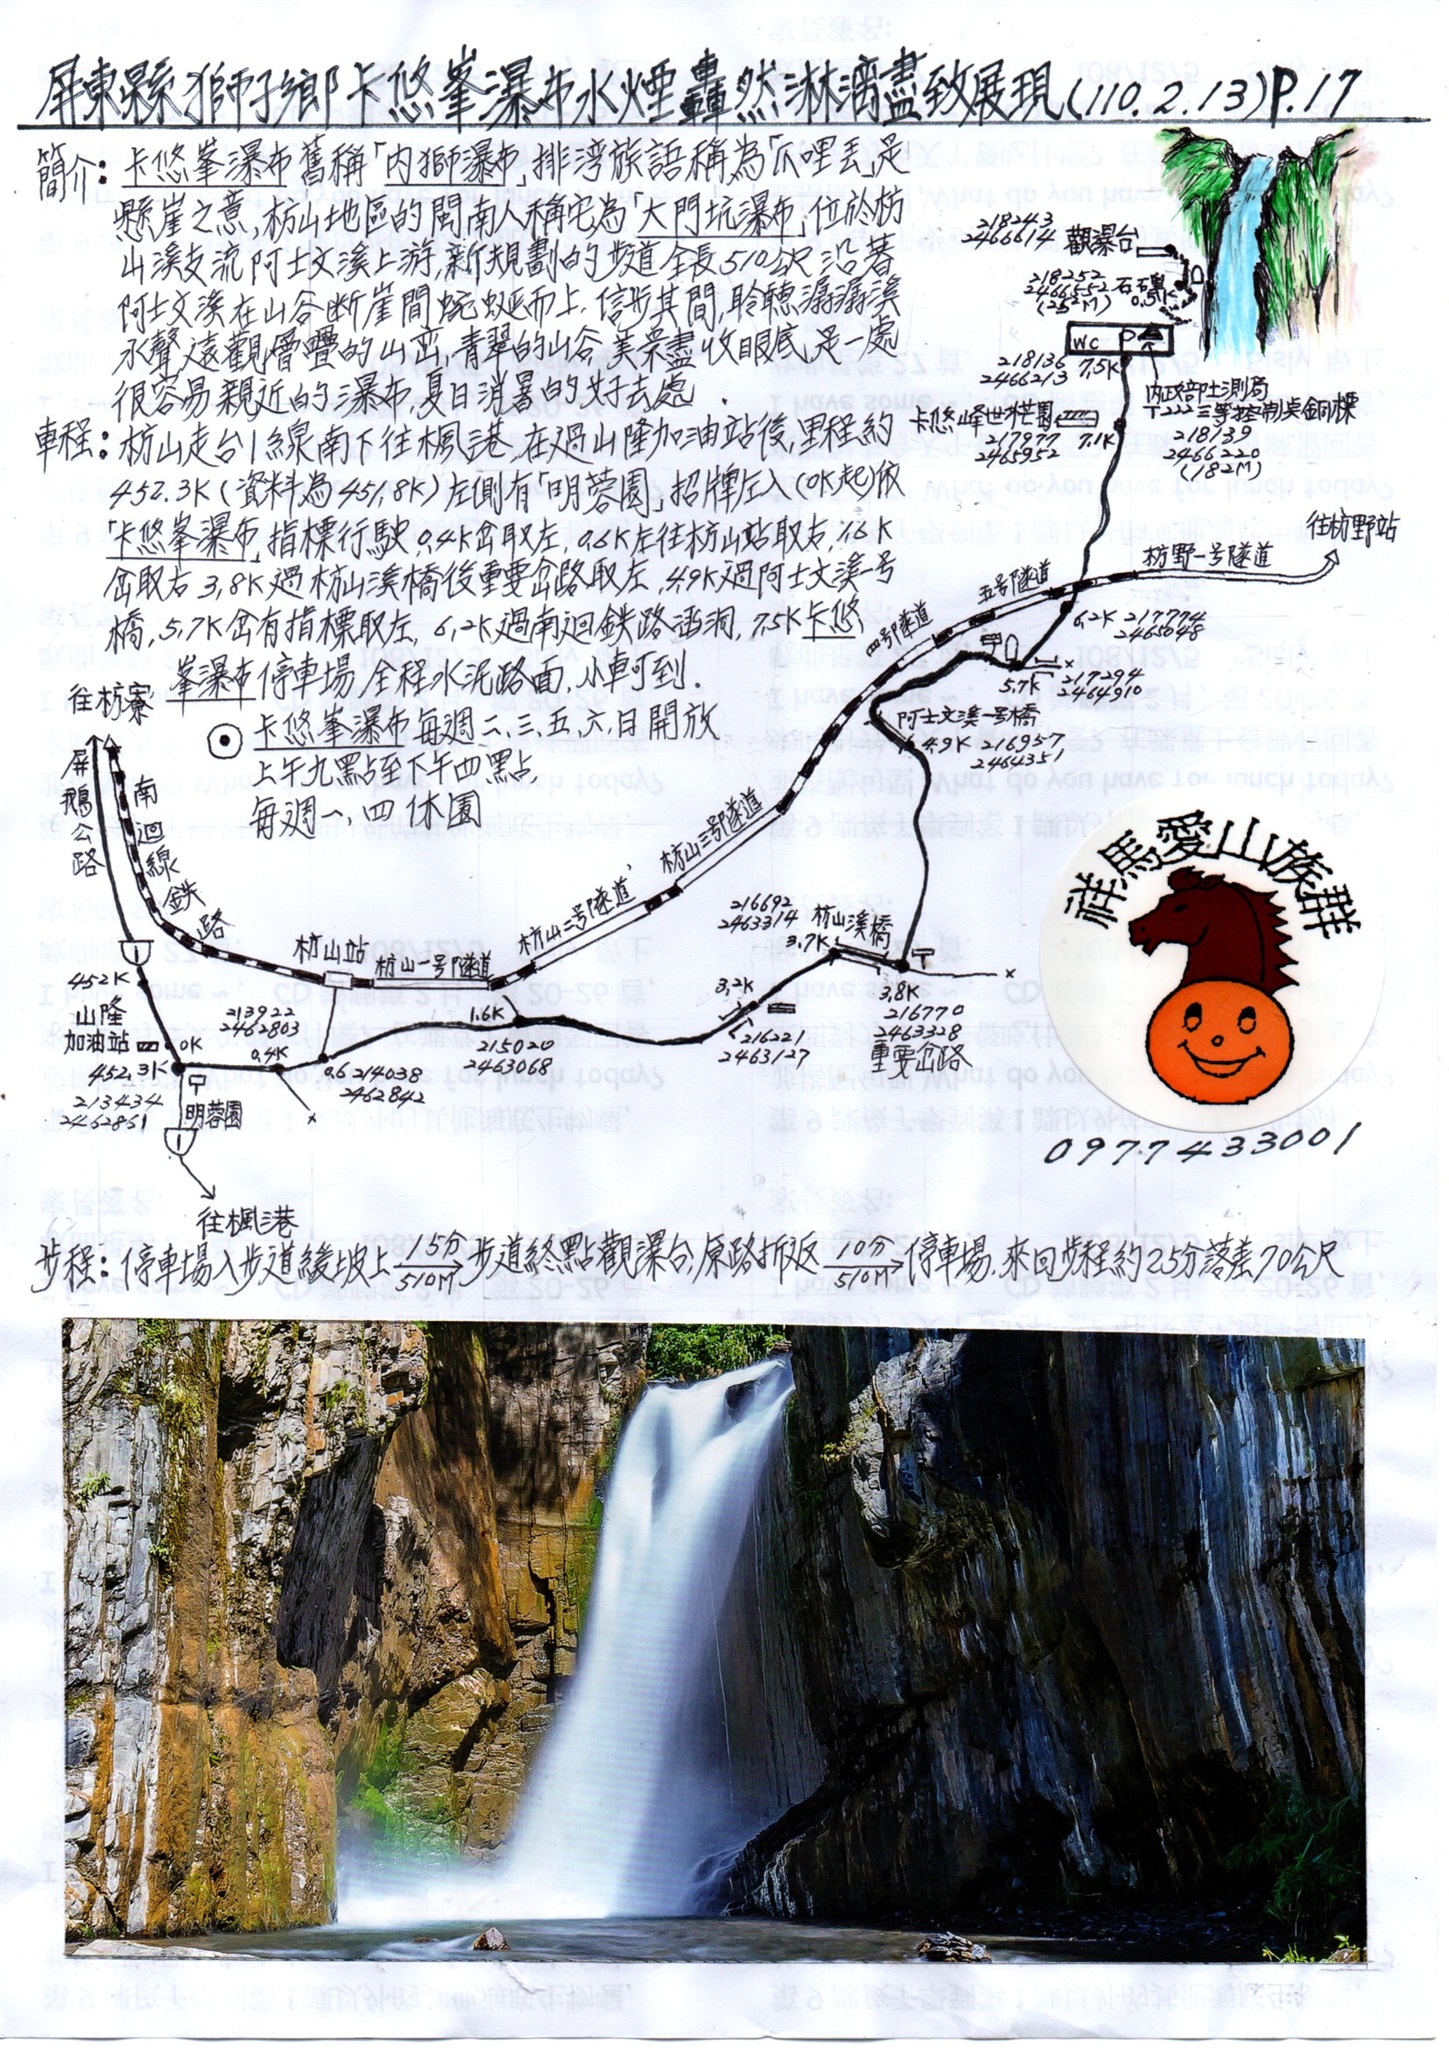 屏東縣獅子鄉卡悠峯瀑布水煙轟然淋漓盡致展現(110.2.13)P.17
簡介:卡悠峯瀑布舊稱「內獅瀑布」排湾族語稱為「 哩丟」是
懸崖之意,枋山地區的閩南人稱它為「大門坑瀑布」位於枋
山溪支流阿士文溪上游,新規劃的步道全長510公尺沿著
阿士文溪在山谷断崖間蜿蜒而上,信步其間,聆聽潺潺溪
水聲,遠觀層疊的山巒,青翠的山谷,美景盡收眼底,是一處
很容易親近的瀑布,夏日消暑的好去處.
車程:枋山走台1線南下往楓港,在過山隆加油站後里程約
452.3K(資料為451,8K)左側有「明蓉園」招牌左入(0K起)依
「卡悠峯瀑布」指標行駛,0,4K岔取左,0,6K左往枋山站取右,1,6K
岔取右3,8K過枋山溪橋後重要岔路取左,4,9K過阿士文溪一号
橋,5,7K岔有指標取左,6,2K過南迴鉄路涵洞,7,5K卡悠
峯瀑布停車場,全程水泥路面,小車可到.
卡悠峯瀑布每週二、三、五、六、日開放
上午九點至下午四點,
每週一、四休園
218243
2466614 觀瀑台
218252
2466552
(252M)
0,5K
WC P
218136
2466213
7,5K
內政部土測局
三等控制點銅標
218139
2466220
(182M)
卡悠峰世外芒園
217977
2465952
7,1K
往枋野站
枋野一号隧道
五号隧道
四号隧道
6,2K 217774
2465048
5,7K 217294
2464910
阿士文溪一号橋
4,9K 216957
2464351
往枋寮
屏鵝公路
南迴線鉄路
枋山三号隧道
枋山二号隧道
枋山一号隧道
枋山站
216692
2463314
枋山溪橋
3,7K
3,8K
216770
2463328
重要岔路
3,2K
21622
2463127
1.6K
215020
2463068
452K
山隆
加油站
0K
213922
2462803
0,4K
0,6 214038
2462842
452,3K
213434
2462861
明蓉園
1
往楓港
祥馬愛山族群
0977433001
步程:停車場入步道緩坡上 15分 510M 步道終點觀瀑台,原路折返 10分 510M 停車場,來回步程約25分落差70公尺